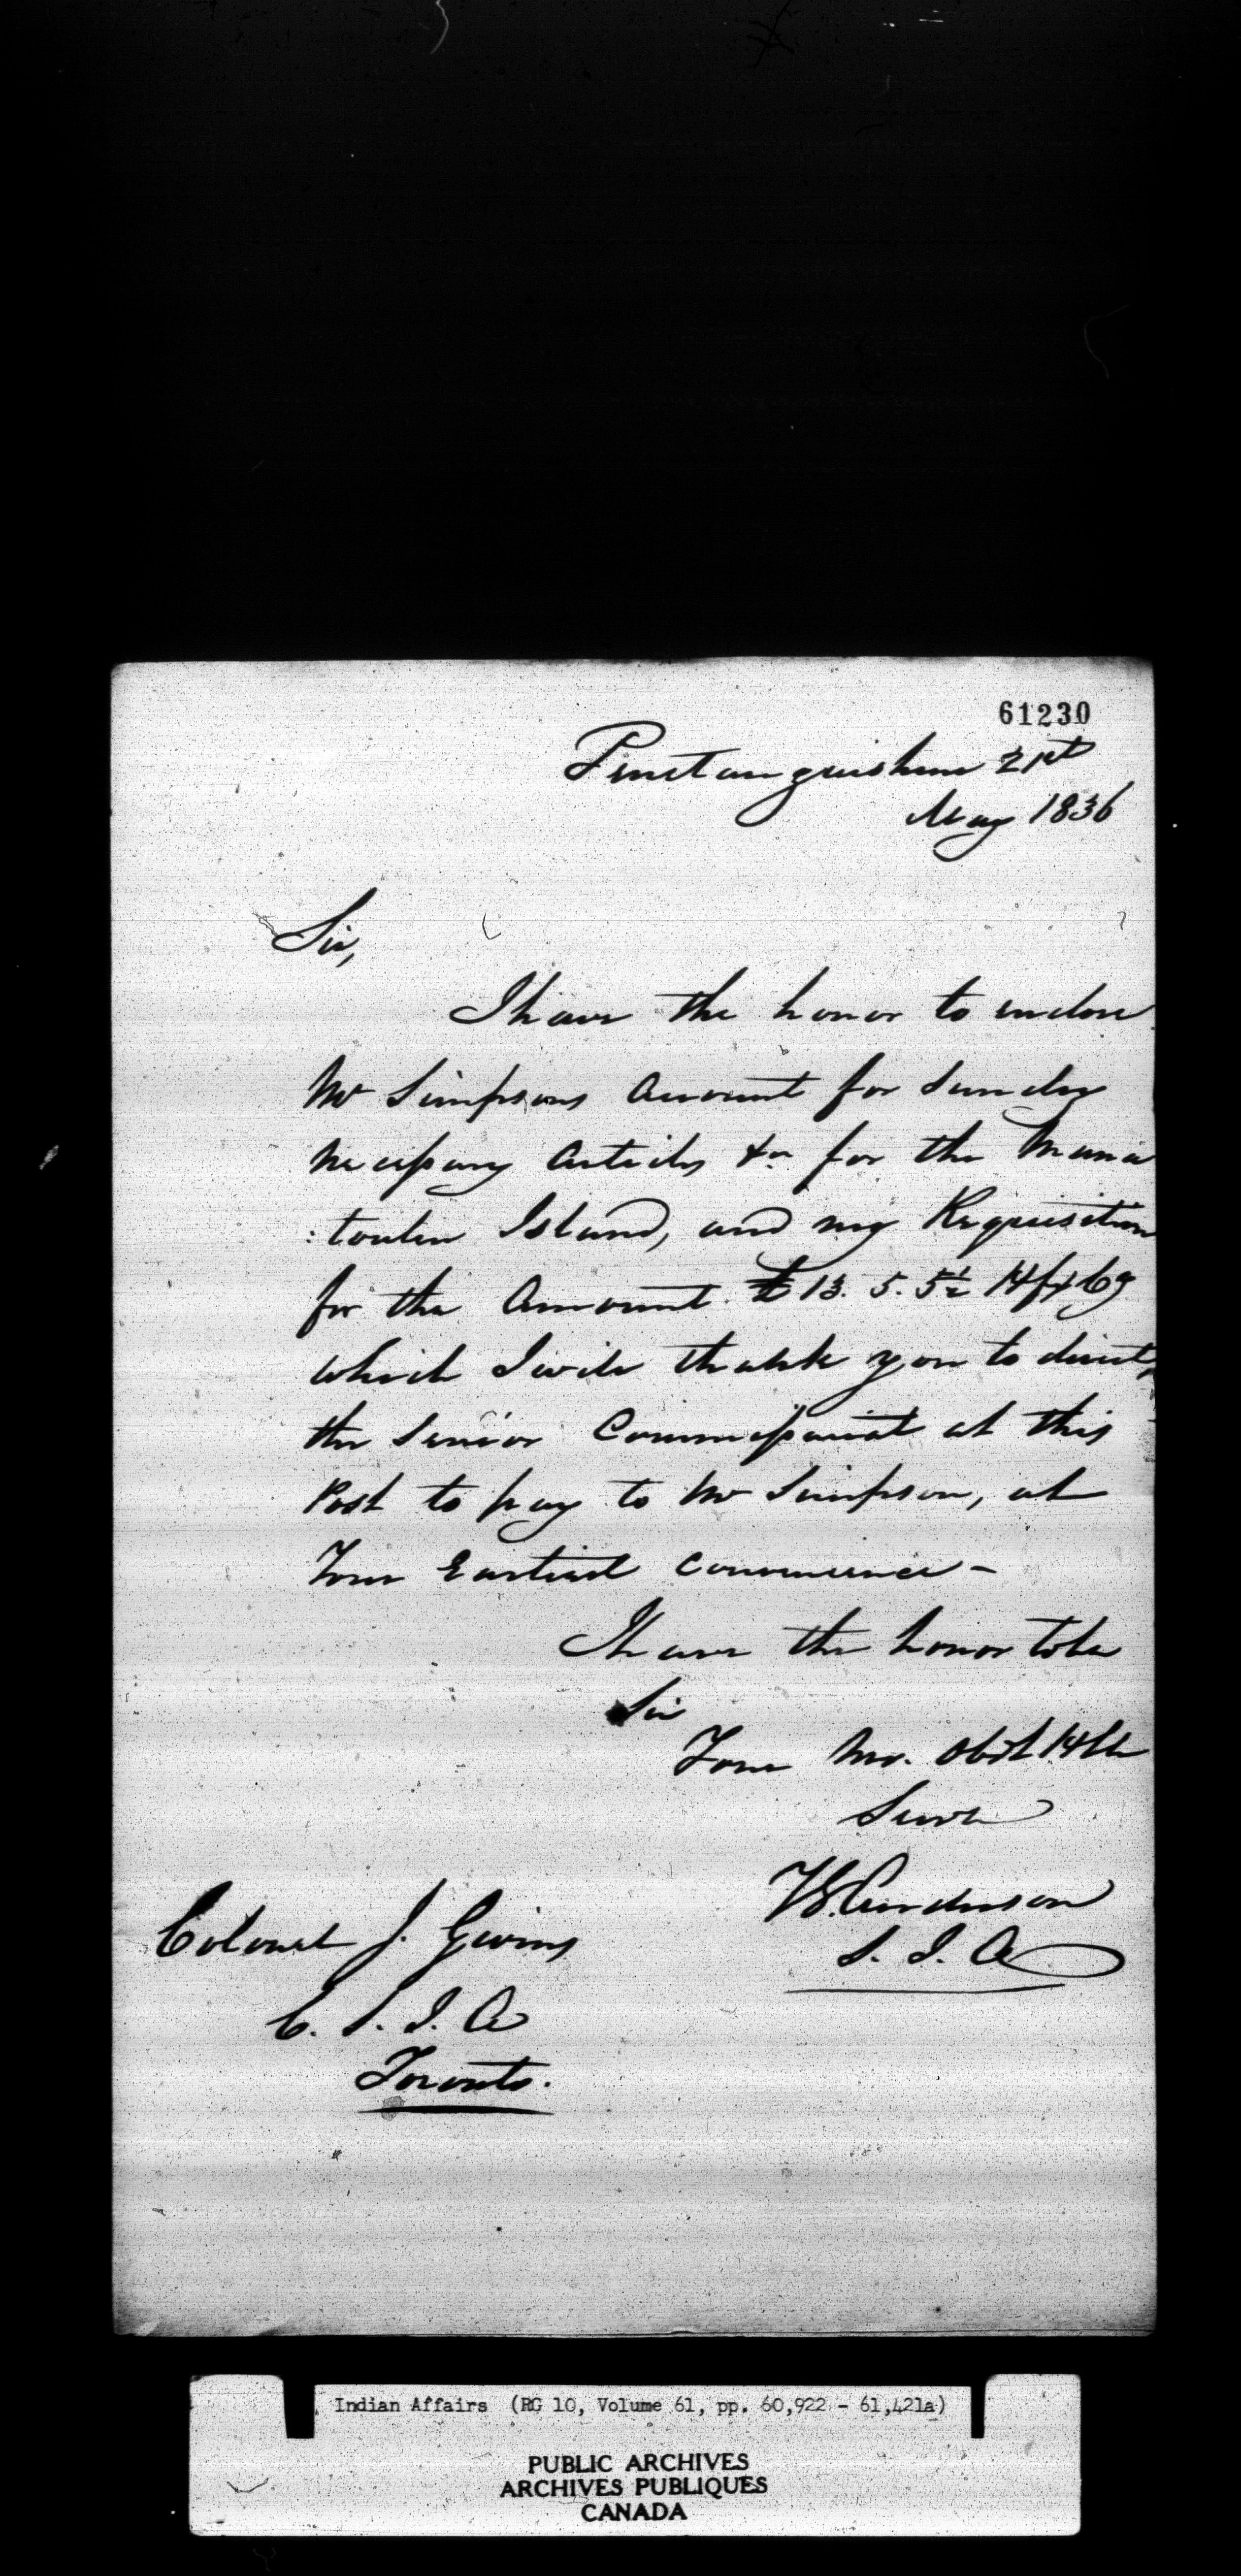 61230
Penetanguishene 21st
May 1836
Sir,
I have the honor to enclose
Mr Simpsons Account for Sundry
necessary Articles &c for the Mana
:toulin Island, and my Requisition
for the Amount £13. 5. 5½ H fx Cy
which I will thank you to direct
the Senior Commissariat at this
Post to pay to Mr Simpson, at
Your Earliest convenience -
I have the honor to be
Sir
Your Mo. Obdt Hble
Servt
T.G. Anderson
S. I. A
Colonel J. Givins
C. S. I. A
Toronto.
Indian Affairs (RG 10, Volume 61, pp. 60,922 - 61,421a)
PUBLIC ARCHIVES
ARCHIVES PUBLIQUES
CANADA